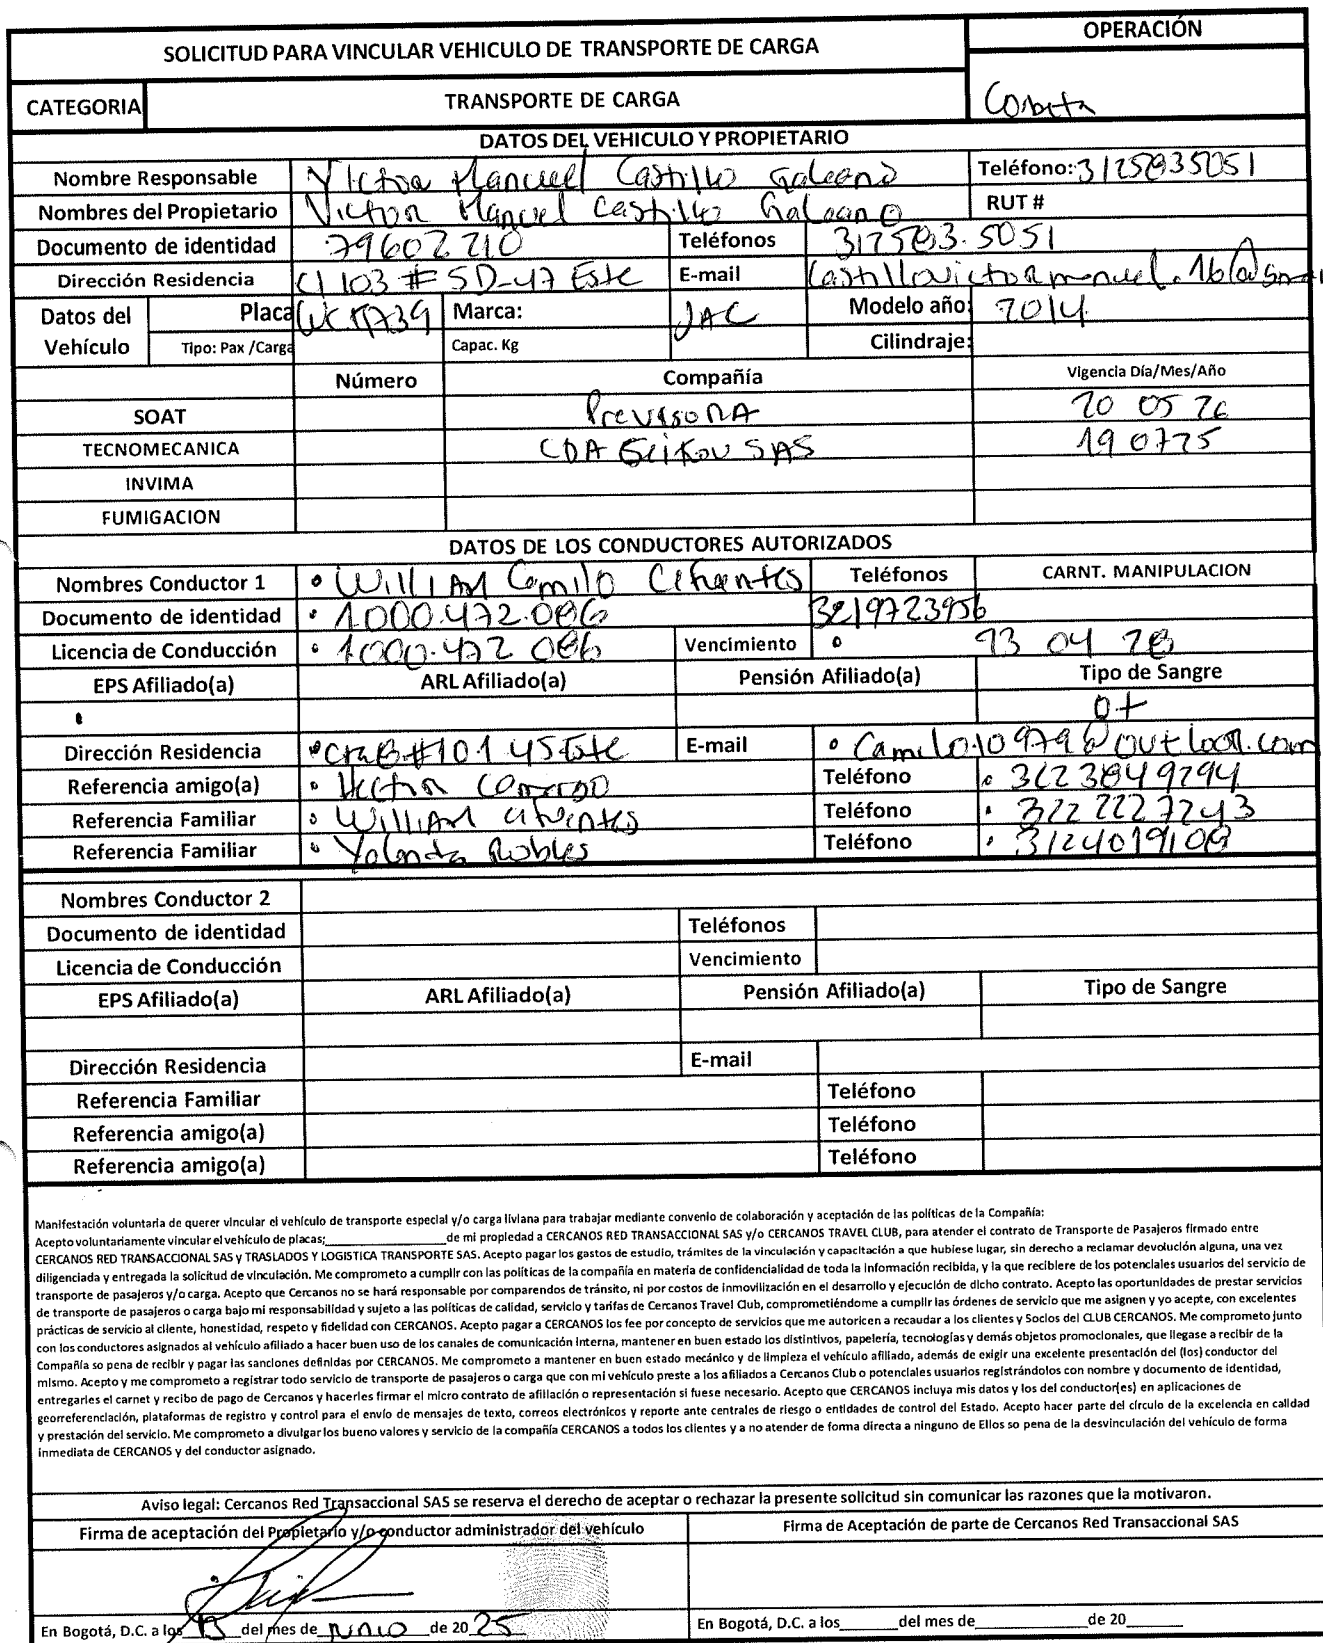 SOLICITUD PARA VINCULAR VEHICULO DE TRANSPORTE DE CARGA
OPERACIÓN
CATEGORIA TRANSPORTE DE CARGA Corbeta
DATOS DEL VEHICULO Y PROPIETARIO
Nombre Responsable Victor Manuel Castillo Galeano Teléfono: 3125835051
Nombres del Propietario Victor Manuel Castillo Galeano RUT #
Documento de identidad 79602210 Teléfonos 312583.5051
Dirección Residencia Cl 103 # 5D-47 Este E-mail
Datos del Vehículo Placa Marca: JAC Modelo año: 2014
Tipo: Pax /Carga Capac. Kg Cilindraje:
Número Compañía Vigencia Día/Mes/Año
SOAT PrevisoRA 20 05 26
TECNOMECANICA CDA SAS 19 07 25
INVIMA
FUMIGACION
DATOS DE LOS CONDUCTORES AUTORIZADOS
Nombres Conductor 1 William Camilo Cifuentes Teléfonos CARNT. MANIPULACION
Documento de identidad 1.000.472.086 3219723956
Licencia de Conducción 1.000.472 086 Vencimiento 04 28
EPS Afiliado(a) ARL Afiliado(a) Pensión Afiliado(a) Tipo de Sangre
O+
Dirección Residencia #101 45 Este E-mail Camilo.10979@outlook.com
Referencia amigo(a) Hector Camargo Teléfono 3123849294
Referencia Familiar William Cifuentes Teléfono 3222227243
Referencia Familiar Yolanda Robles Teléfono 3124019108
Nombres Conductor 2
Documento de identidad Teléfonos
Licencia de Conducción Vencimiento
EPS Afiliado(a) ARL Afiliado(a) Pensión Afiliado(a) Tipo de Sangre
Dirección Residencia E-mail
Referencia Familiar Teléfono
Referencia amigo(a) Teléfono
Referencia amigo(a) Teléfono
Manifestación voluntaria de querer vincular el vehículo de transporte especial y/o carga liviana para trabajar mediante convenio de colaboración y aceptación de las políticas de la Compañía:
Acepto voluntariamente vincular el vehículo de placas;____________de mi propiedad a CERCANOS RED TRANSACCIONAL SAS y/o CERCANOS TRAVEL CLUB, para atender el contrato de Transporte de Pasajeros firmado entre
CERCANOS RED TRANSACCIONAL SAS y TRASLADOS Y LOGISTICA TRANSPORTE SAS. Acepto pagar los gastos de estudio, trámites de la vinculación y capacitación a que hubiese lugar, sin derecho a reclamar devolución alguna, una vez
diligenciada y entregada la solicitud de vinculación. Me comprometo a cumplir con las políticas de la compañía en materia de confidencialidad de toda la información recibida, y la que recibiere de los potenciales usuarios del servicio de
transporte de pasajeros y/o carga. Acepto que Cercanos no se hará responsable por comparendos de tránsito, ni por costos de inmovilización en el desarrollo y ejecución de dicho contrato. Acepto las oportunidades de prestar servicios
de transporte de pasajeros o carga bajo mi responsabilidad y sujeto a las políticas de calidad, servicio y tarifas de Cercanos Travel Club, comprometiéndome a cumplir las órdenes de servicio que me asignen y yo acepte, con excelentes
prácticas de servicio al cliente, honestidad, respeto y fidelidad con CERCANOS. Acepto pagar a CERCANOS los fee por concepto de servicios que me autoricen a recaudar a los clientes y Socios del CLUB CERCANOS. Me comprometo junto
con los conductores asignados al vehículo afiliado a hacer buen uso de los canales de comunicación interna, mantener en buen estado los distintivos, papelería, tecnologías y demás objetos promocionales, que llegase a recibir de la
Compañía so pena de recibir y pagar las sanciones definidas por CERCANOS. Me comprometo a mantener en buen estado mecánico y de limpieza el vehículo afiliado, además de exigir una excelente presentación del (los) conductor del
mismo. Acepto y me comprometo a registrar todo servicio de transporte de pasajeros o carga que con mi vehículo preste a los afiliados a Cercanos Club o potenciales usuarios registrándolos con nombre y documento de identidad,
entregarles el carnet y recibo de pago de Cercanos y hacerles firmar el micro contrato de afiliación o representación si fuese necesario. Acepto que CERCANOS incluya mis datos y los del conductor(es) en aplicaciones de
georreferenciación, plataformas de registro y control para el envío de mensajes de texto, correos electrónicos y reporte ante centrales de riesgo o entidades de control del Estado. Acepto hacer parte del círculo de la excelencia en calidad
y prestación del servicio. Me comprometo a divulgar los bueno valores y servicio de la compañía CERCANOS a todos los clientes y a no atender de forma directa a ninguno de Ellos so pena de la desvinculación del vehículo de forma
inmediata de CERCANOS y del conductor asignado.
Aviso legal: Cercanos Red Transaccional SAS se reserva el derecho de aceptar o rechazar la presente solicitud sin comunicar las razones que la motivaron.
Firma de aceptación del Propietario y/o conductor administrador del vehículo Firma de Aceptación de parte de Cercanos Red Transaccional SAS
En Bogotá, D.C. a los 13 del mes de Junio de 20 25 En Bogotá, D.C. a los______del mes de____________de 20______